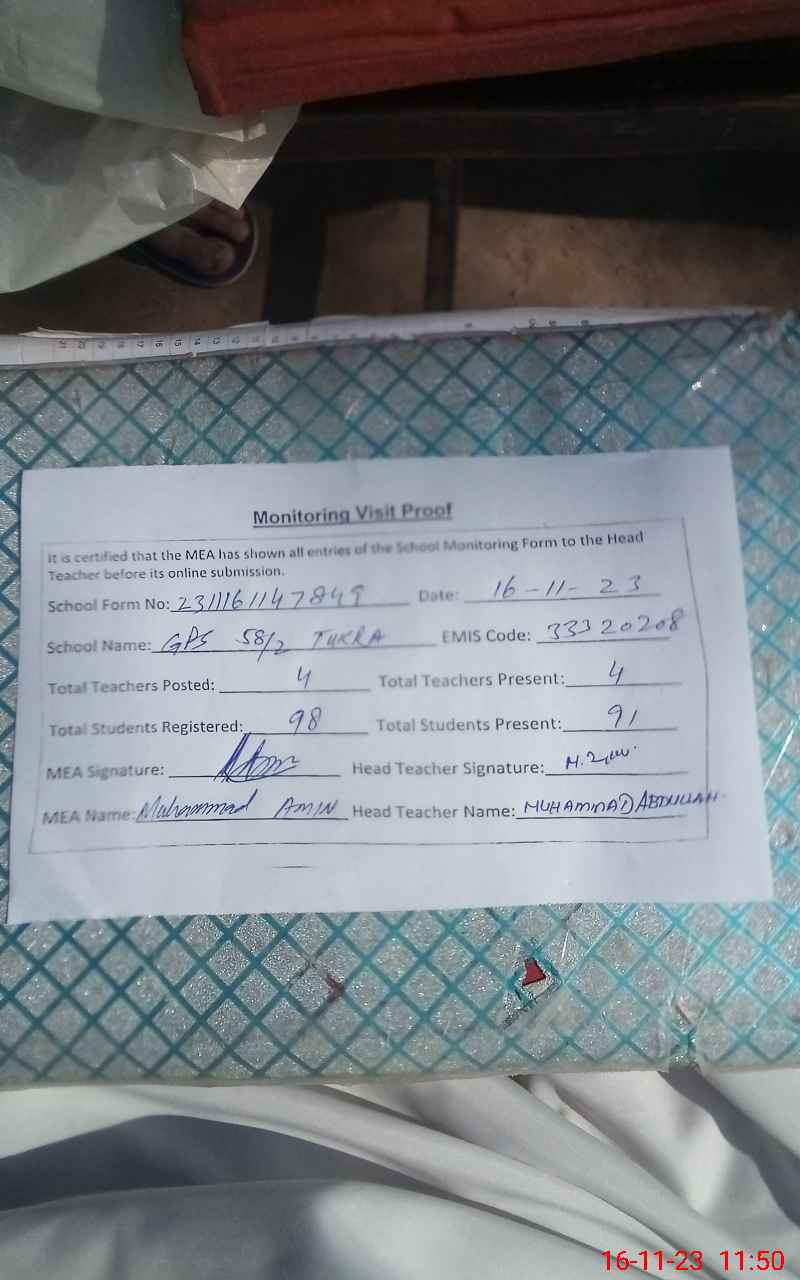 Monitoring Visit Proof
It is certified that the MEA has shown all entries of the School Monitoring Form to the Head
Teacher before its online submission.
School Form No: 2311161147849 Date: 16-11-23
School Name: GPS 58/2 TUKRA EMIS Code: 33320208
Total Teachers Posted: 4 Total Teachers Present: 4
Total Students Registered: 98 Total Students Present: 91
MEA Signature: Head Teacher Signature:
MEA Name: Muhammad AMIN Head Teacher Name: MUHAMMAD ABDULLAH
16-11-23 11:50